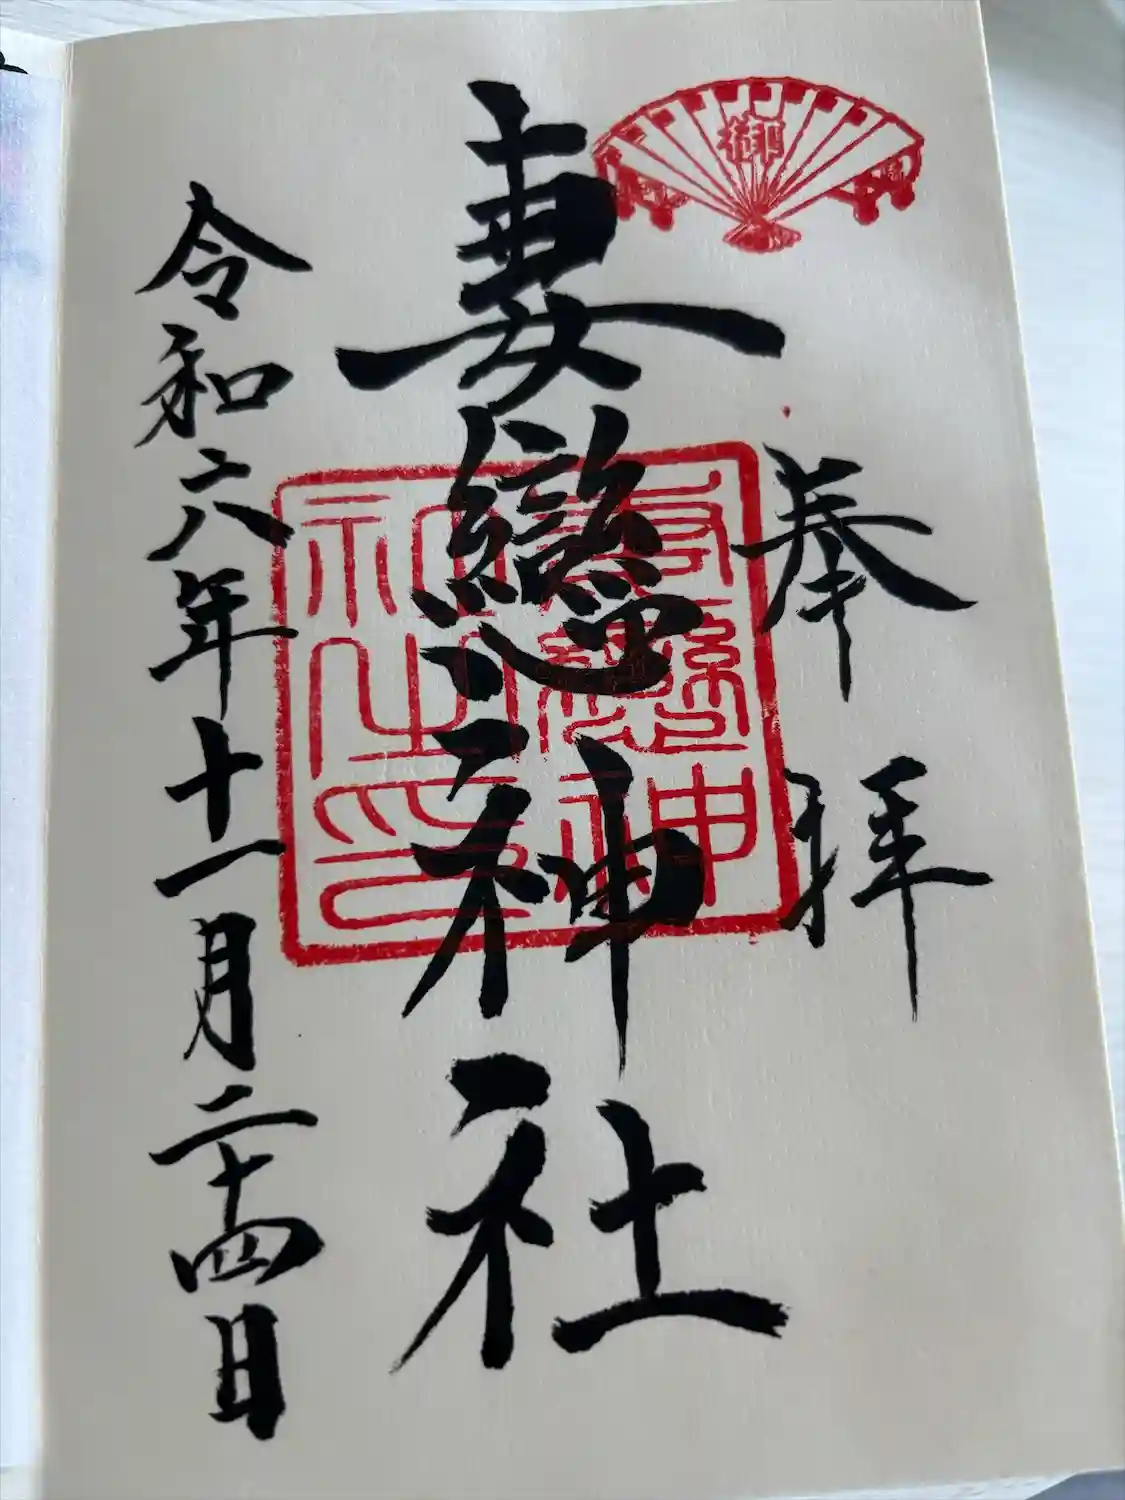 御
奉拝
妻戀神社
妻戀神社之印
令和六年十一月二十四日